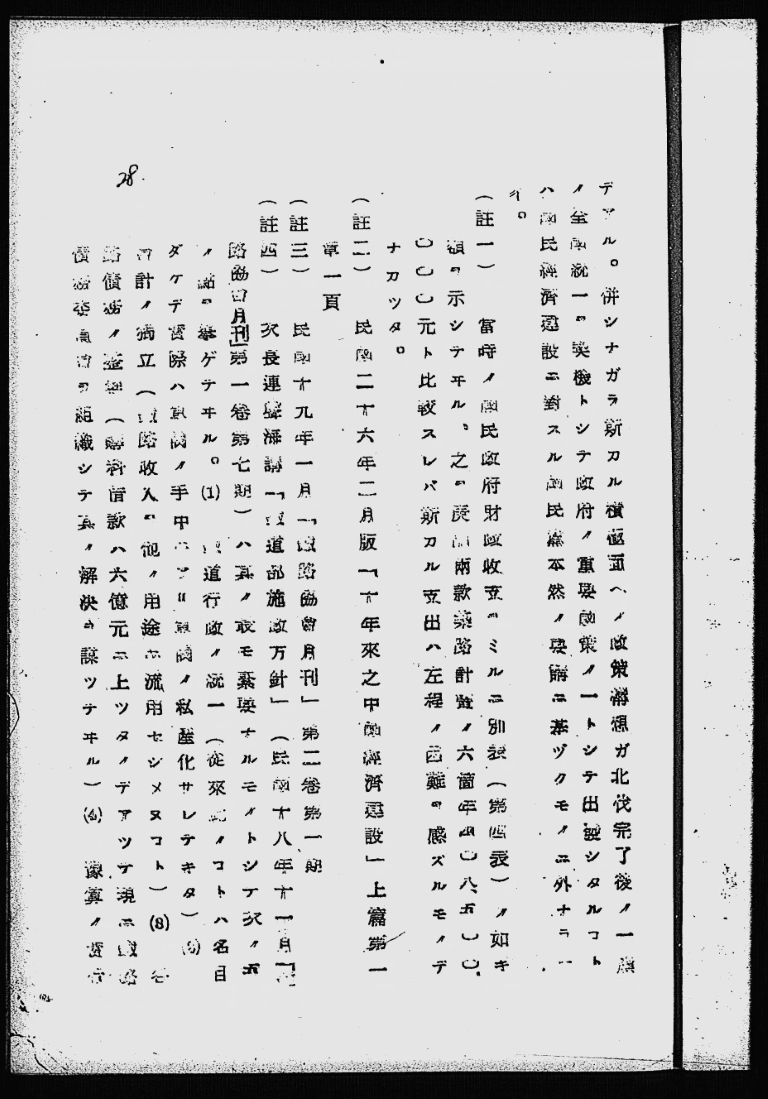 28.
デアル。併シナガラ斯カル積極面ヘノ政策構想ガ北伐完了後ノ一應
ノ全國統一ヲ契機トシテ政府ノ重要國策ノ一トシテ出發シタルコト
ハ國民經濟建設ニ對スル國民黨本然ノ要請ニ基ヅクモノニ外ナラ
(註一) 當時ノ國民政府財政收支ヲミルニ別表(第四表)ノ如キ
額ヲ示シテヰル、之ヲ庚關兩款築路計畫ノ六箇年四〇八、五〇〇、
〇〇〇元ト比較スレバ斯カル支出ハ左程ノ困難ヲ感ズルモノデ
ナカツタ。
(註二) 民國二十六年二月版「十年來之中國經濟建設」上篇第一
章一頁
(註三) 民國十九年一月「鐵路協會月刊」第二卷第一期
(註四) 次長連聲海講「鐵道部施政方針」(民國十八年十一月「鐵
路協會月刊」第一卷第七期)ハ其ノ最モ緊要ナルモノトシテ次ノ五
ノ點ヲ擧ゲテヰル。(1) 鐵道行政ノ統一(從來此ノコトハ名目
ダケデ實際ハ軍閥ノ手中ニアリ軍閥ノ私產化サレテキタ)
會計ノ獨立(鐵路收入ヲ他ノ用途ニ流用セシメヌコト)(8)
路債務ノ整理(購料借款ハ六億元ニ上ツタノデアツテ現ニ鐵路
債務委員會ヲ組織シテ其ノ解決ヲ謀ツテヰル)(4) 豫算ノ實行